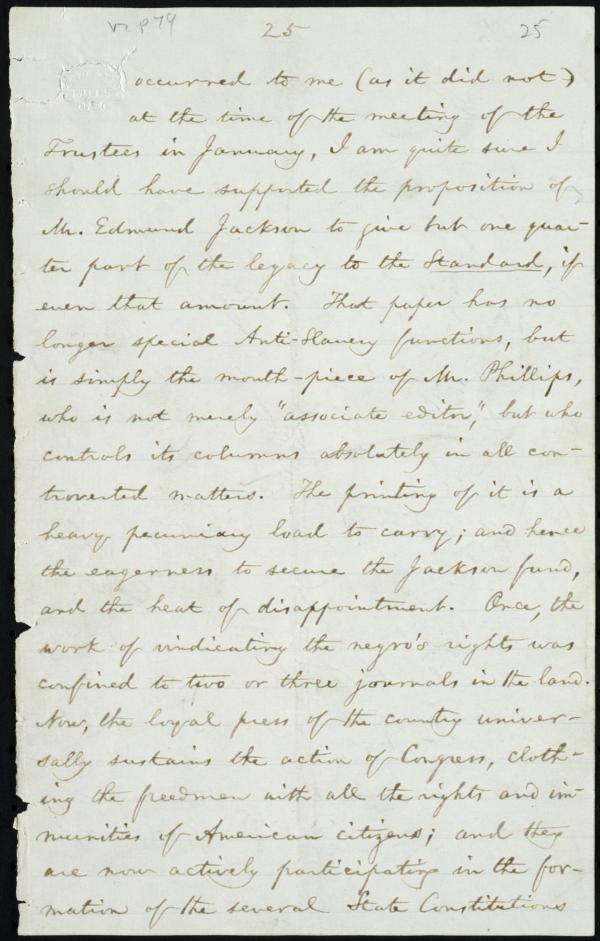 V2 p79
25
25
occurred to me (as it did not)
at the time of the meeting of the
Trustees in January, I am quite sure I
should have supported the proposition of
Mr. Edmund Jackson to give but one quar-
ter part of the legacy to the Standard, if
even that amount. That paper has no
longer special Anti-Slavery functions, but
is simply the mouth-piece of Mr. Phillips,
who is not merely "associate editor," but who
controls its columns absolutely in all con-
troverted matters. The printing of it is a
heavy pecuniary load to carry; and hence
the eagerness to secure the Jackson fund,
and the heat of disappointment. Once, the
work of vindicating the negro's rights was
confined to two or three journals in the land.
Now, the loyal press of the country univer-
sally sustains the action of Congress, cloth-
ing the freedmen with all the rights and im-
munities of American citizens; and they
are now actively participating in the for-
mation of the several State Constitutions